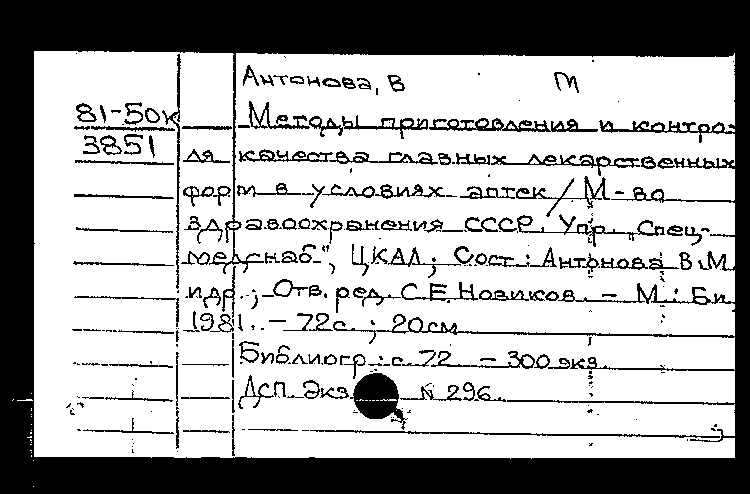 Антонова, В М
81-50к Методы приготовления и контро-
3851 ля качества главных лекарственных
форм в условиях аптек / М-во
здравоохранения СССР. Упр. "Спец-
медснаб", ЦКАЛ; Сост.: Антонова В.М.
и др.; Отв. ред. С.Е. Новиков. - М.: Б.и,
1981. - 72с.; 20см
Библиогр.: с. 72 - 300 экз.
ДСП. Экз N 296.